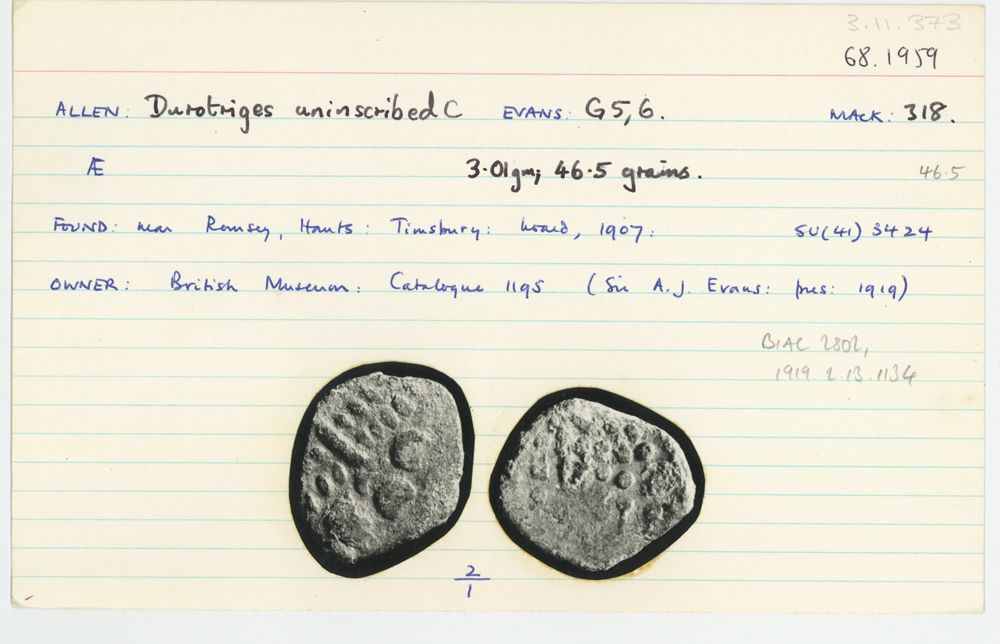 3.11.373
68.1959
ALLEN: Durotriges uninscribed C EVANS: G5,6. MACK: 318.
Æ 3.01gm; 46.5 grains. 46.5
FOUND: near Romsey, Hants: Timsbury: hoard, 1907: SU(41) 3424
OWNER: British Museum: Catalogue 1195 (Sir A.J. Evans: pres: 1919)
BIAC 2802,
1919.2.13.1134
2
1